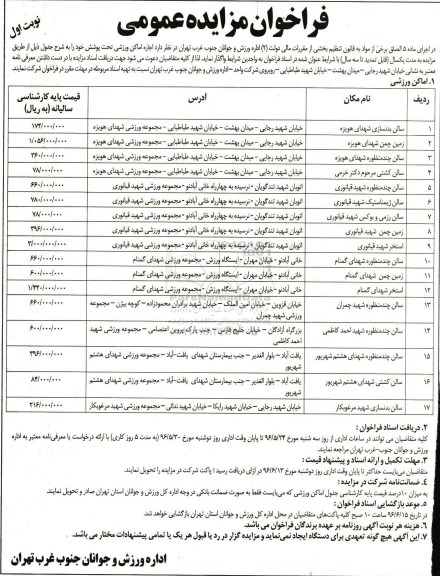 فراخوان مزایده عمومی
نوبت اول
در اجرای ماده ۵ الحاق برخی از مواد به قانون تنظیم بخشی از مقررات مالی دولت (۲) اداره ورزش و جوانان جنوب غرب تهران در نظر دارد اجاره اماکن ورزشی تحت پوشش خود را به شرح جدول ذیل از طریق
مزایده به مدت یکسال (قابل تمدید تا سه سال) با شرایط عنوان شده در اسناد فراخوان به واجدین شرایط واگذار نماید. لذا از کلیه متقاضیان دعوت می شود جهت دریافت اسناد مزایده با در دست داشتن معرفی نامه
معتبر به نشانی خیابان شهید رجایی – میدان بهشت – خیابان شهید طباطبایی – روبروی شرکت واحد – اداره ورزش و جوانان جنوب غرب تهران نسبت به تهیه اسناد مربوطه در مهلت مقرر در فراخوان شرکت نمایند.
۱. اماکن ورزشی
ردیف نام مکان آدرس قیمت پایه کارشناسی سالیانه (به ریال)
۱ سالن بدنسازی شهدای هویزه خیابان شهید رجایی – میدان بهشت – خیابان شهید طباطبایی – مجموعه ورزشی شهدای هویزه ۱۷۴/۰۰۰/۰۰۰
۲ زمین چمن شهدای هویزه خیابان شهید رجایی – میدان بهشت – خیابان شهید طباطبایی – مجموعه ورزشی شهدای هویزه ۱/۰۵۶/۰۰۰/۰۰۰
۳ سالن چندمنظوره شهدای هویزه خیابان شهید رجایی – میدان بهشت – خیابان شهید طباطبایی – مجموعه ورزشی شهدای هویزه ۳۶۰/۰۰۰/۰۰۰
۴ سالن کشتی مرحوم دکتر خرمی خیابان شهید رجایی – میدان بهشت – خیابان شهید طباطبایی – مجموعه ورزشی شهدای هویزه ۷۸/۰۰۰/۰۰۰
۵ سالن چندمنظوره شهید قیانوری اتوبان شهید تندگویان – نرسیده به چهارراه خانی آبادنو – مجموعه ورزشی شهید قیانوری ۶۶۰/۰۰۰/۰۰۰
۶ سالن ژیمناستیک شهید قیانوری اتوبان شهید تندگویان – نرسیده به چهارراه خانی آبادنو – مجموعه ورزشی شهید قیانوری ۷۸۰/۰۰۰/۰۰۰
۷ سالن رزمی و بوکس شهید قیانوری اتوبان شهید تندگویان – نرسیده به چهارراه خانی آبادنو – مجموعه ورزشی شهید قیانوری ۷۸/۰۰۰/۰۰۰
۸ زمین چمن شهید قیانوری اتوبان شهید تندگویان – نرسیده به چهارراه خانی آبادنو – مجموعه ورزشی شهید قیانوری ۳۹۶/۰۰۰/۰۰۰
۹ استخر شهید قیانوری اتوبان شهید تندگویان – نرسیده به چهارراه خانی آبادنو – مجموعه ورزشی شهید قیانوری ۲/۰۰۰/۰۰۰/۰۰۰
۱۰ سالن چندمنظوره شهدای گمنام خانی آبادنو – خیابان مهران – ایستگاه ورزش – مجموعه ورزشی شهدای گمنام ۶۶۰/۰۰۰/۰۰۰
۱۱ زمین چمن شهدای گمنام خانی آبادنو – خیابان مهران – ایستگاه ورزش – مجموعه ورزشی شهدای گمنام ۶۰۰/۰۰۰/۰۰۰
۱۲ استخر شهدای گمنام خانی آبادنو – خیابان مهران – ایستگاه ورزش – مجموعه ورزشی شهدای گمنام
۱۳ سالن چندمنظوره شهید چمران خیابان قزوین – خیابان امین الملک – خیابان شهید برادران محمودزاده – کوچه بیژن – مجموعه ورزشی شهید چمران ۶۶۰/۰۰۰/۰۰۰
۱۴ سالن چندمنظوره شهید احمد کاظمی بزرگراه آزادگان – خیابان خلیج فارس – جنب پارک پروین اعتصامی – مجموعه ورزشی شهید احمد کاظمی ۶۰۰/۰۰۰/۰۰۰
۱۵ سالن چندمنظوره شهدای هشتم شهریور یافت آباد – بلوار الغدیر – جنب بیمارستان شهدای یافت-آباد – مجموعه ورزشی شهدای هشتم شهریور ۳۹۶/۰۰۰/۰۰۰
۱۶ سالن کشتی شهدای هشتم شهریور یافت آباد – بلوار الغدیر – جنب بیمارستان شهدای یافت-آباد – مجموعه ورزشی شهدای هشتم شهریور ۸۴/۰۰۰/۰۰۰
۱۷ سالن بدنسازی شهید مرغوبکار خیابان شهید رجایی – خیابان شهید رایکا – خیابان شهید ندائی – مجموعه ورزشی شهید مرغوبکار ۲۱۶/۰۰۰/۰۰۰
۲. دریافت اسناد فراخوان :
کلیه متقاضیان می توانند در ساعات اداری از روز سه شنبه مورخ ۹۶/۵/۲۴ تا پایان وقت اداری روز دوشنبه مورخ ۹۶/۵/۳۰ (به مدت ۵ روز کاری) با ارائه درخواست یا معرفی‌نامه معتبر به اداره
ورزش و جوانان جنوب-غرب تهران مراجعه نمایند.
۳. مهلت تکمیل و ارائه اسناد و پیشنهاد قیمت :
متقاضیان می‌بایست حداکثر تا پایان وقت اداری روز دوشنبه مورخ ۹۶/۶/۱۳ در ازای دریافت رسید ؛ پاکت شرکت در مزایده را تحویل نمایند.
۴. ضمانت‌نامه شرکت در مزایده :
به میزان ۱۰درصد قیمت پایه کارشناسی جدول اماکن ورزشی که می‌بایست فقط به صورت ضمانت بانکی در وجه اداره کل ورزش و جوانان استان تهران صادر و تحویل نمایند.
۵. موعد بازگشایی اسناد فراخوان :
در تاریخ ۹۶/۶/۱۵ ساعت ۱۰ صبح کلیه پاکت‌های متقاضیان در محل اداره کل ورزش و جوانان استان تهران بازگشایی خواهد شد.
۶. هزینه هر نوبت آگهی روزنامه بر عهده برندگان فراخوان می باشد.
۷. این آگهی هیچ گونه تعهدی برای دستگاه ایجاد نمی‌نماید و مزایده گزار در رد یا قبول هر یک یا تمامی پیشنهادات مختار می باشد.
اداره ورزش و جوانان جنوب غرب تهران